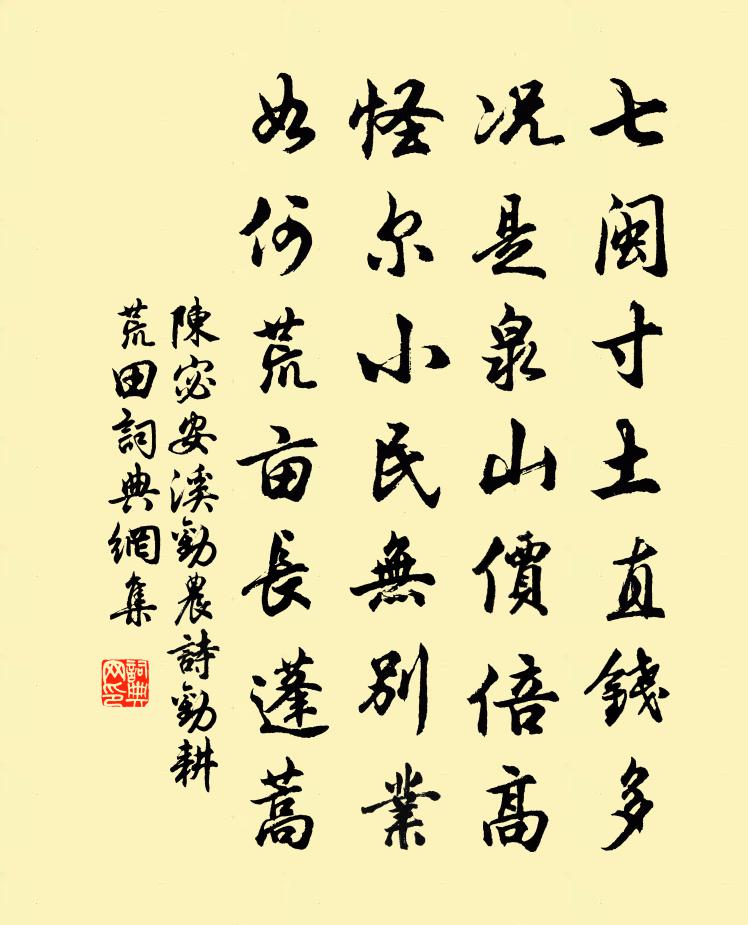 七閩寸土直錢多
況是泉山價倍高
怪尔小民無別業
如何荒亩長蓬蒿
陳宓安溪勸農詩勸耕
荒田詞典網集
詞典网印